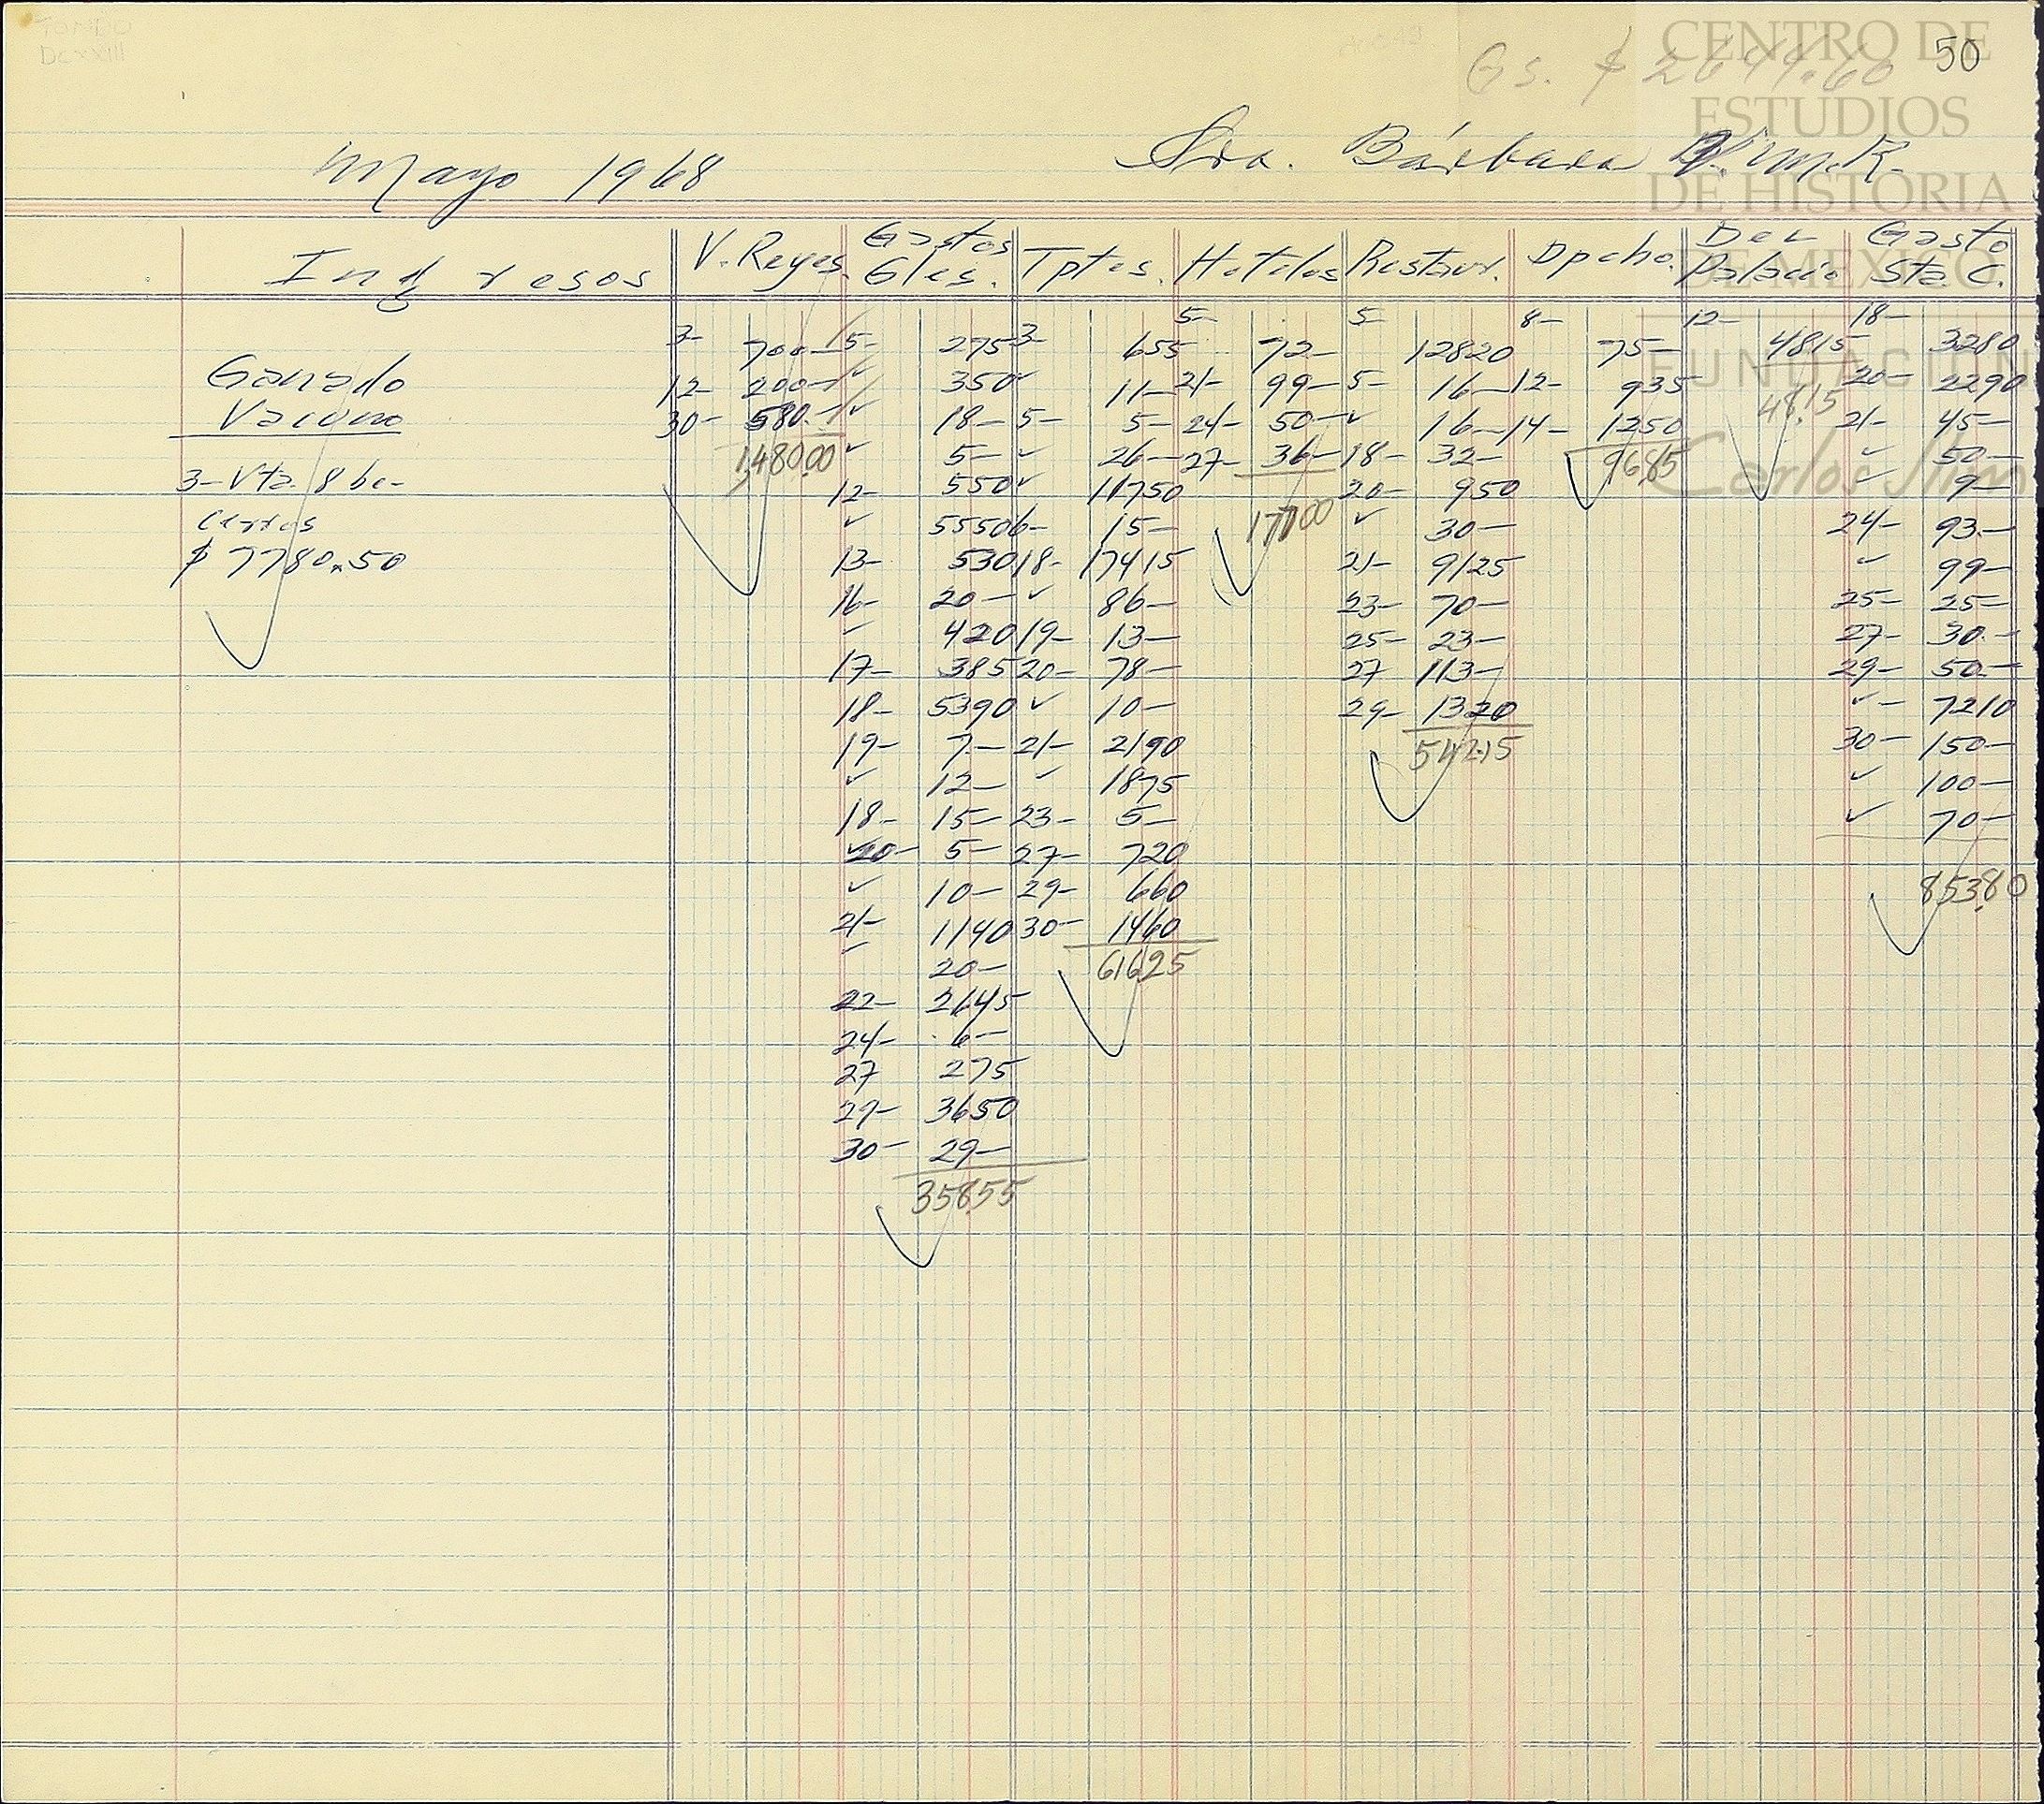 FONDO
DCXXIII
50
Gs. $ 2699.60
CENTRO DE
ESTUDIOS
DE HISTORIA
DE MEXICO
FUNDACION
Carlos Slim
Mayo 1968 Sra. Bárbara
Ingresos V. Reyes. Gastos Gles. Tptes. Hoteles Restaur. Dpcho. Del Palacio Gasto Sta. C.
5- 5- 8- 12- 18-
3- 700- 5- 275 3- 655 72- 12820 75- 4815 3280
Ganado 12- 200- ✓ 350 ✓ 11- 21- 99- 5- 16- 12- 935 4815 20- 2290
Vacuno 30- 580- ✓ 18- 5- 5- 24- 50- ✓ 16- 14- 1250 21- 45-
1,480.00 ✓ 5- ✓ 26- 27- 36- 18- 32- 96.85 ✓ 50-
3- Vta. 8 be- 12- 550 ✓ 11750 20- 950 ✓ 9-
cerros ✓ 5550 6- 15- 17700 ✓ 30- 24- 93-
$ 7780.50 13- 530 18- 17415 21- 9125 ✓ 99-
16- 20- ✓ 86- 23- 70- 25- 25-
✓ 420 19- 13- 25- 23- 27- 30-
17- 385 20- 78- 27 113- 29- 50-
18- 5390 ✓ 10- 29- 1320 ✓- 7210
19- 7- 21- 2190 542.15 30- 150-
✓ 12- ✓ 1875 ✓ 100-
18- 15- 23- 5- ✓ 70-
20- 5- 27- 720
✓ 10- 29- 660 853.80
21- 1140 30- 1460
✓ 20- 616.25
22- 2645
24- 6-
27 275
29- 3650
30- 29-
358.55